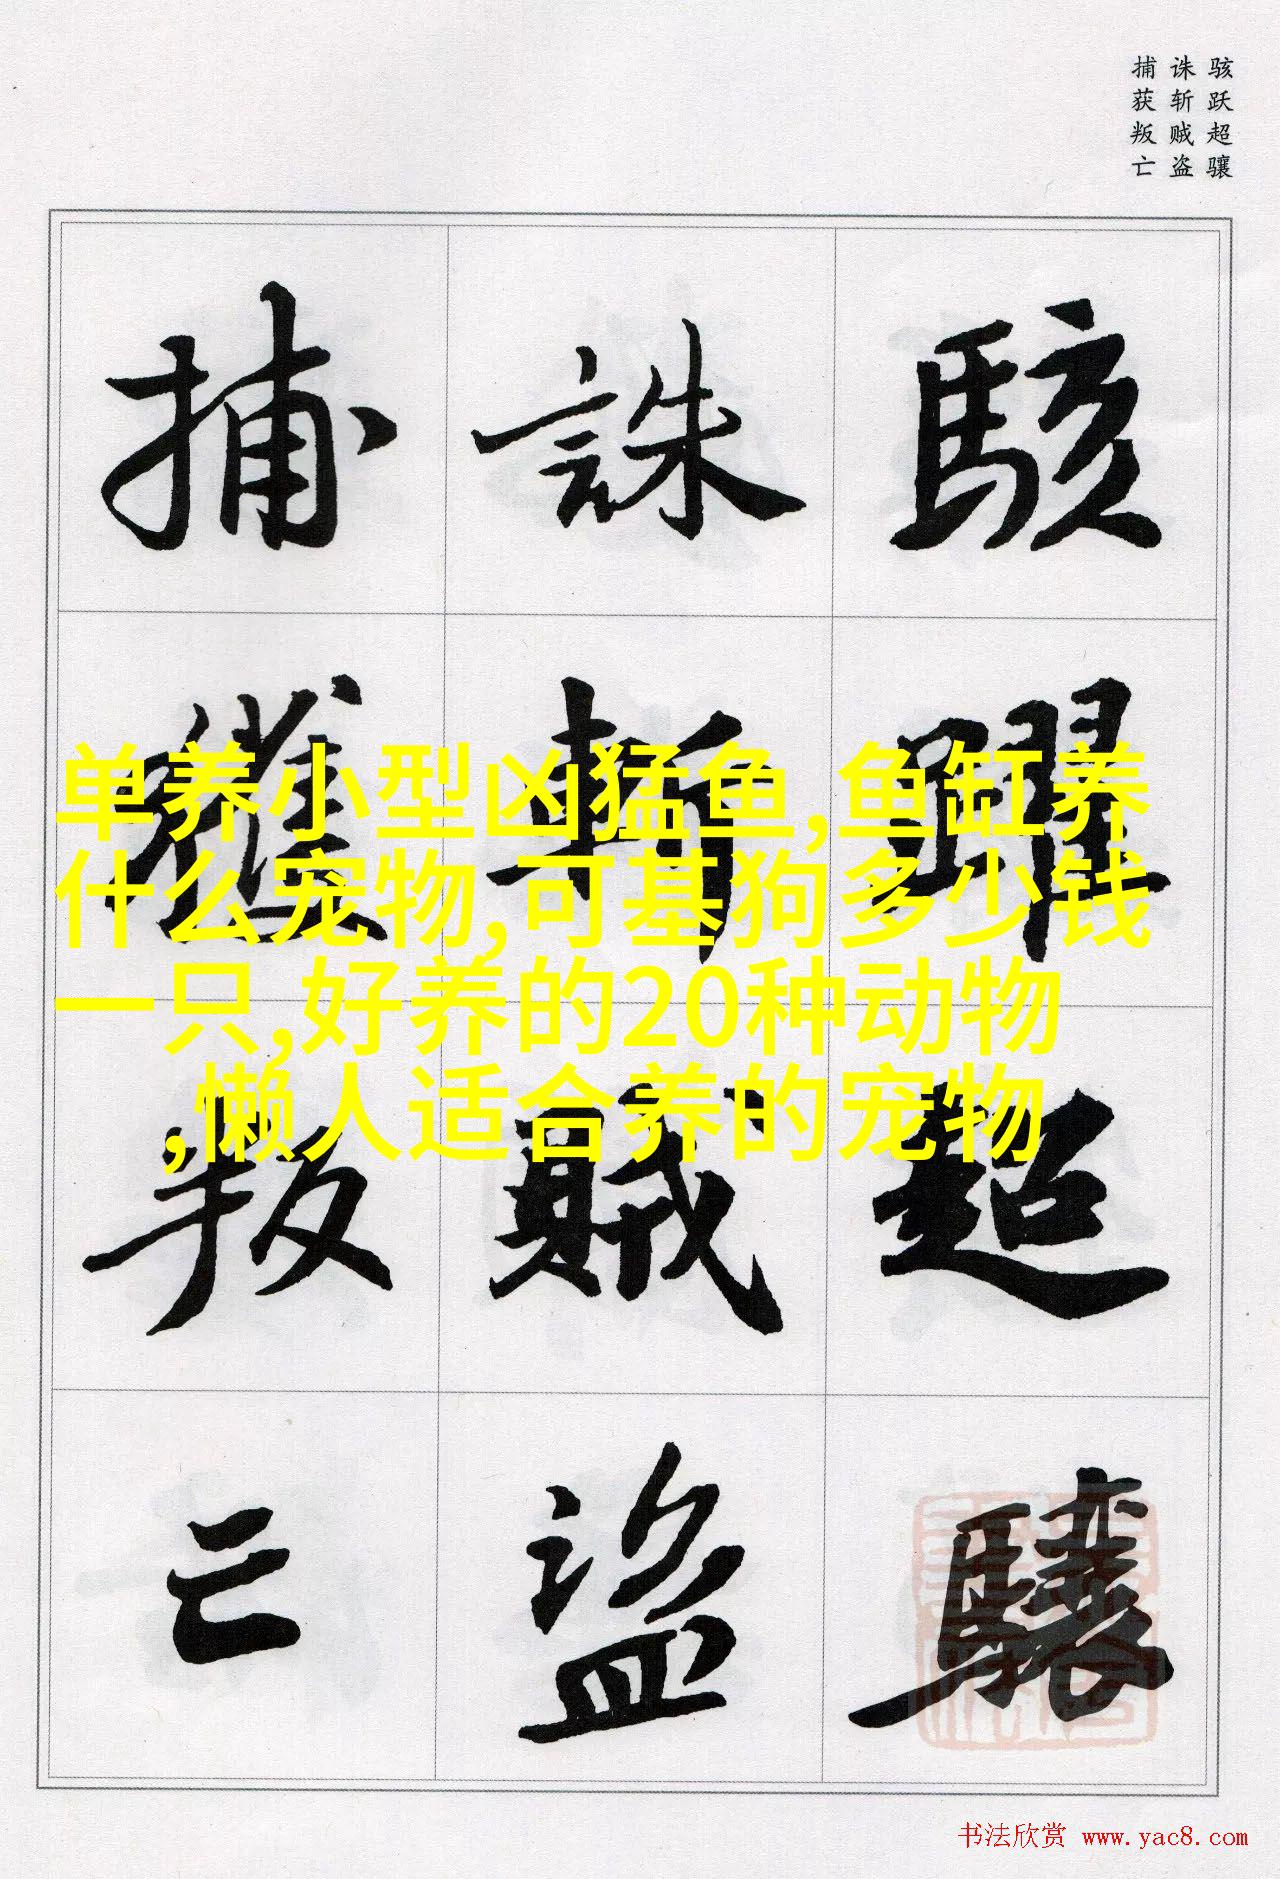 骇跃超骧
诛斩贼盗
捕获叛亡
駭躍超驤
誅斬賊盜
捕獲叛亡
单养小型凶猛鱼,鱼缸养
什么宠物,可基狗多少钱
一只,好养的20种动物
,懒人适合养的宠物
书法欣赏 www.yac8.com